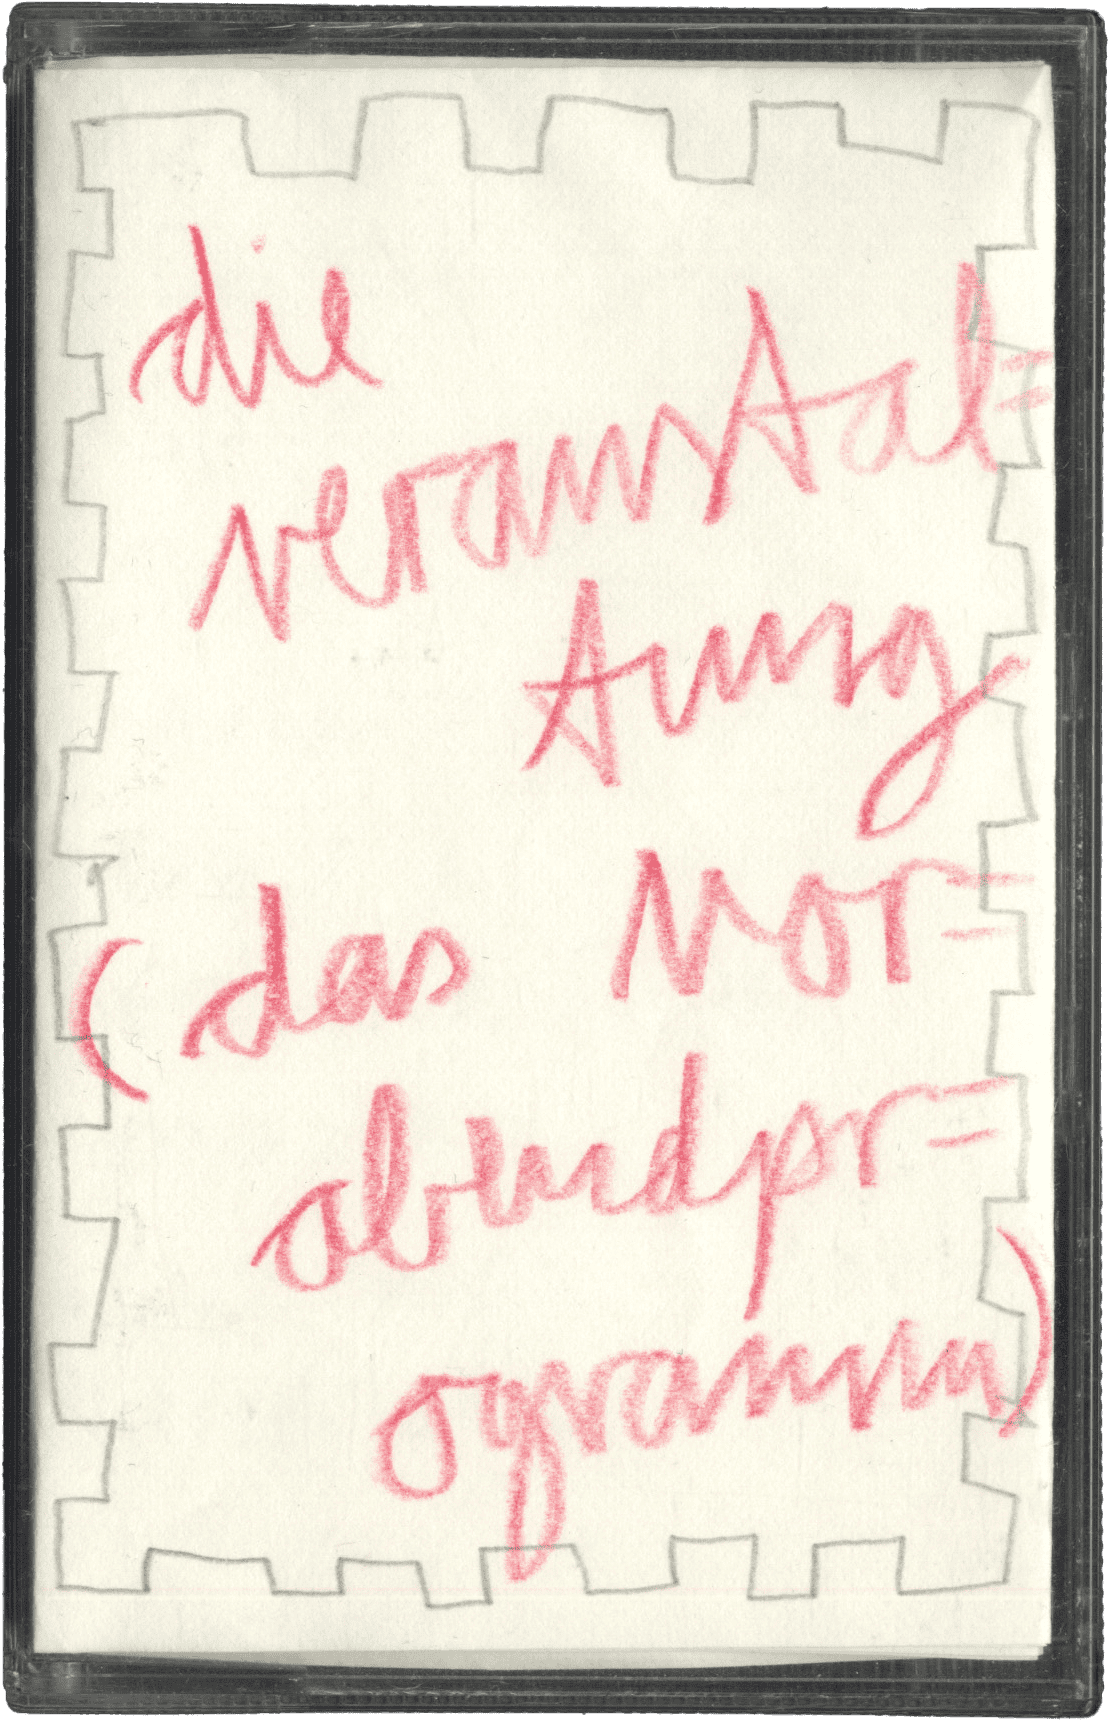 die
veranstal=
tung
(das vor=
abendpr=
ogramm)